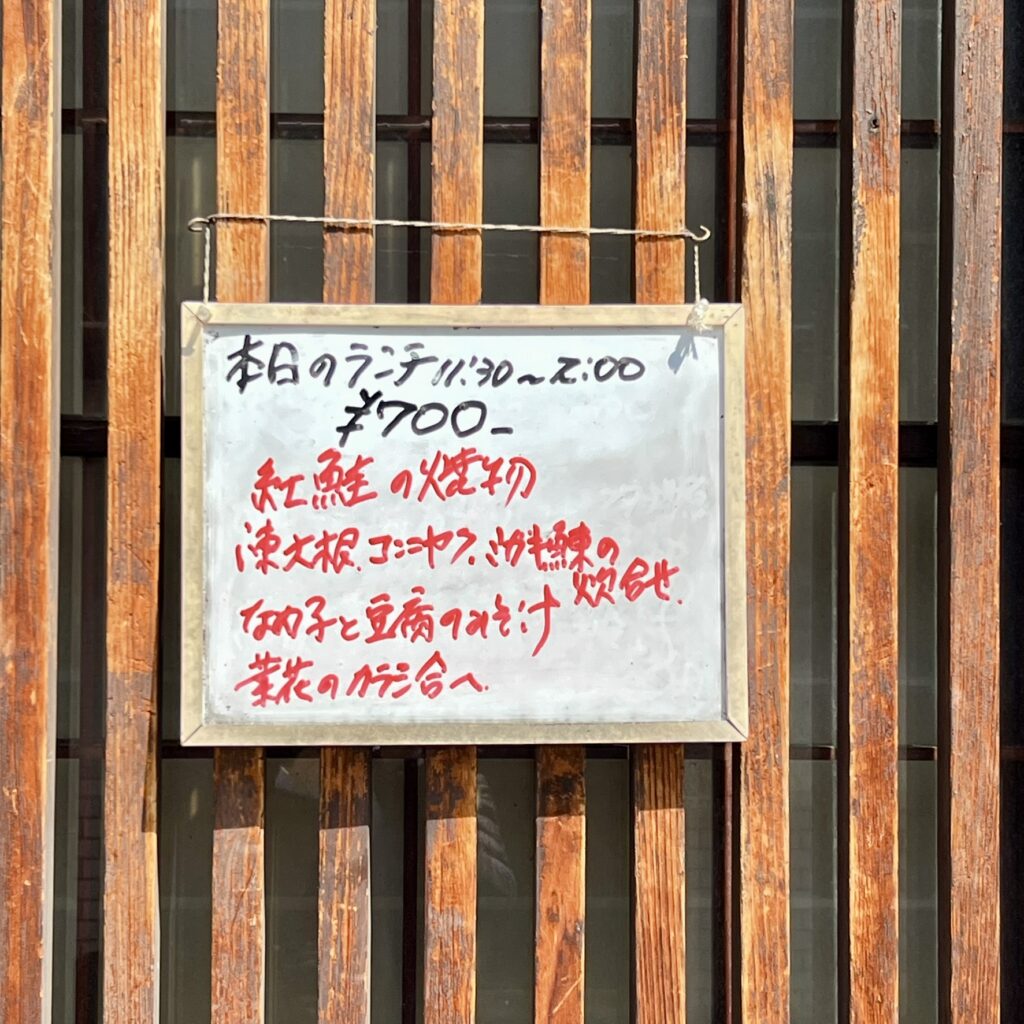 本日のランチ 11:30～2:00
¥700-
紅鮭の焼物
凍大根.コンニヤク.みがき鰊の
炊合せ.
なめ子と豆腐のみそ汁
菜花のカラシ合へ.